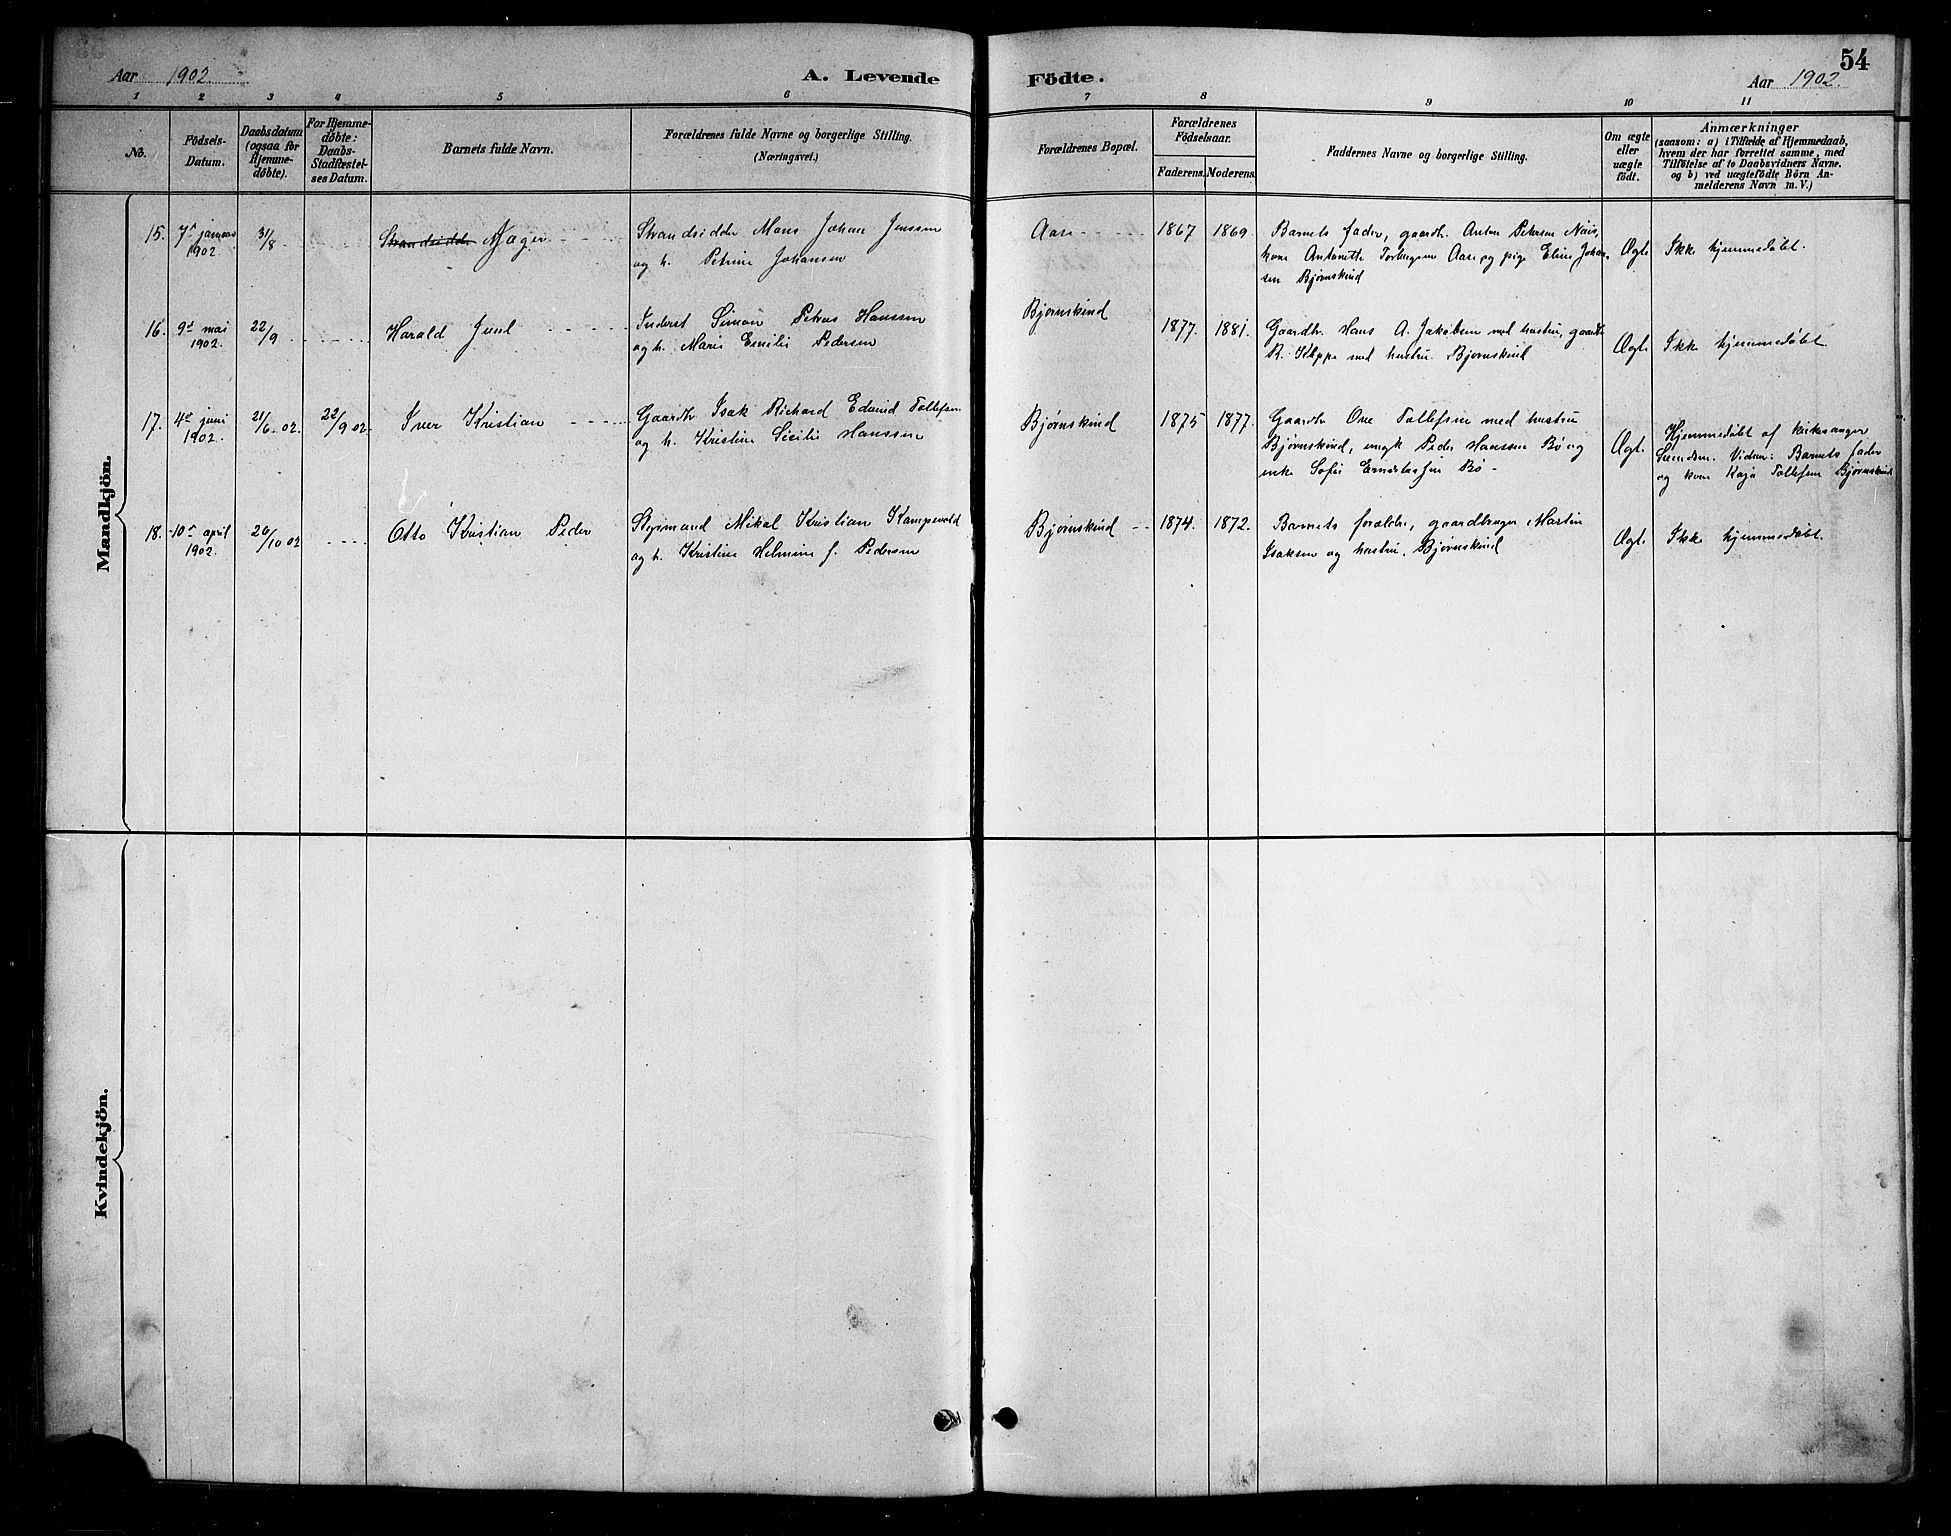 Aar 1902.
A. Levende
Födte.
54
Aar 1902.
1 2 3 4 5 6 7 8 9 10 11
No.
Födsels-
Datum.
Daabsdatum
(ogsaa for
Hjemme-
döbte).
For Hjemme-
döbte:
Daabs-
Stadfæstel-
ses Datum.
Barnets fulde Navn.
Forældrenes fulde Navne og borgerlige Stilling.
(Næringsvei.)
Forældrenes Bopæl.
Forældrenes
Födselsaar.
Faderens. Moderens.
Faddernes Navne og borgerlige Stilling.
Om ægte
eller
uægte
födt.
Anmærkninger
(saasom: a) i Tilfælde af Hjemmedaab,
hvem der har forrettet samme, med
Tilföielse af to Daabsvidners Navne,
og b) ved uægtefödte Börn An-
melderens Navn m. V.)
Mandkjön.
15. 7de januar
1902.
31/8
Strandsidder
Strandsidder Hans Johan Jenssen
og h. Petrine Johansen
Aase
1867 1869.
Barnets fader, gaardb. Anton Petersen
kone Antonette Torbergsen Aase og pige Eline Johan-
sen Bjørnskind
Ægt.
Ikke hjemmedøbt.
16. 9de mai
1902.
22/9
Harald Juul
Inderst Simon Petrus Hanssen
og h. Marie Emilie Pedersen
Bjørnskind
1877. 1881.
Gaardbr. Hans A. Jakobsen med hustru, gaardbr
R. Kleppe med hustru. Bjørnskind
Ægt.
Ikke hjemmedøbt.
17. 4de juni
1902.
21/6. 02.
22/9 02.
Iver Kristian
Gaardbr Isak Richard Edvind Tollefsen
og h. Kristine Sicilie Hanssen
Bjørnskind
1875 1877.
Gaardbr Ove Tollefsen med hustru
Bjørnskind, ungk Peder Hanssen Bø og
enke Sofie Bø
Ægt.
Hjemmedøbt af kirkesanger
Vidner: Barnets fader
og kone Kaja Tollefsen Bjørnskind
18. 10de april
1902.
20/10 02
Otto Kristian Peder
Styrmand Mikal Kristian Kampevold
og h. Kristine Helmine f. Pedersen
Bjørnskind
1874. 1872.
Barnets forældre, gaardbruger Martin
Isaksen og hustru. Bjørnskind
Ægt.
Ikke hjemmedøbt.
Kvindekjön.